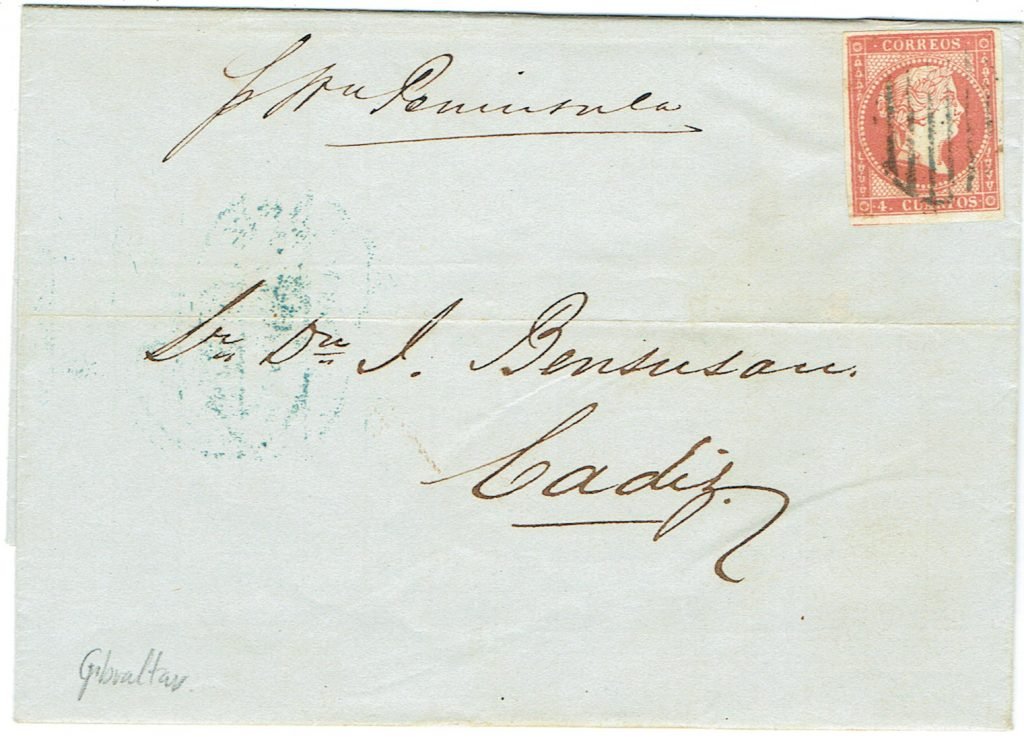 p Str Peninsula
CORREOS
4. CUARTOS
Sr. Dn. J. Bensusan.
Cadiz.
Gibraltar